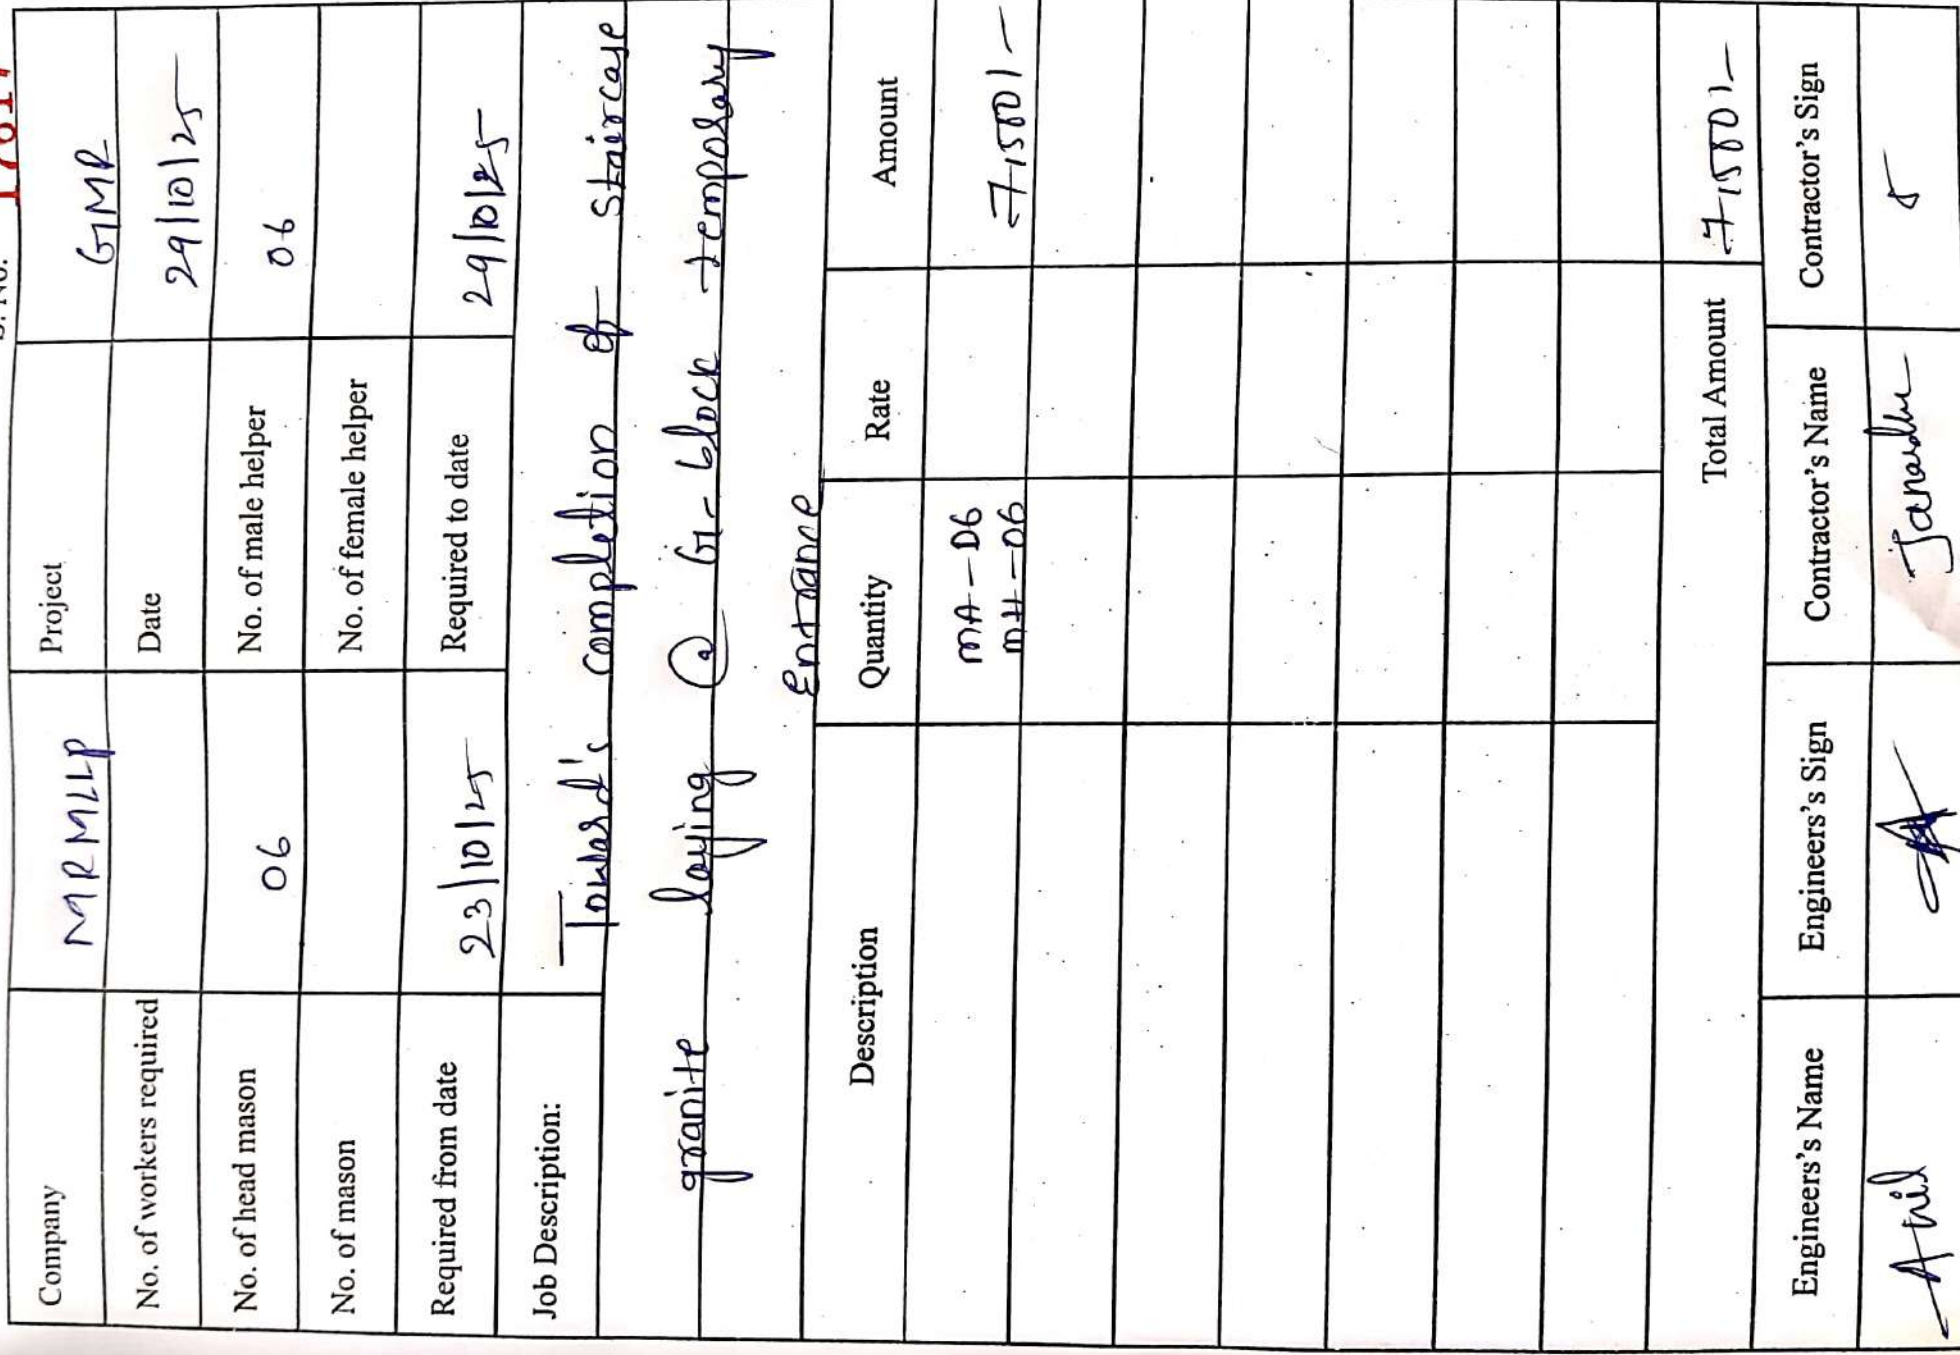 S. No. 17817
Company MRMLLP Project GMR
No. of workers required Date 29/10/25
No. of head mason 06 No. of male helper 06
No. of mason No. of female helper
Required from date 23/10/25 Required to date 29/10/25
Job Description: Toward's completion of staircase
granite laying @ G-block temporary
Entrance
Description Quantity Rate Amount
MA-06 7,500/-
MH-06
Total Amount 7,500/-
Engineers's Name Engineers's Sign Contractor's Name Contractor's Sign
Anil